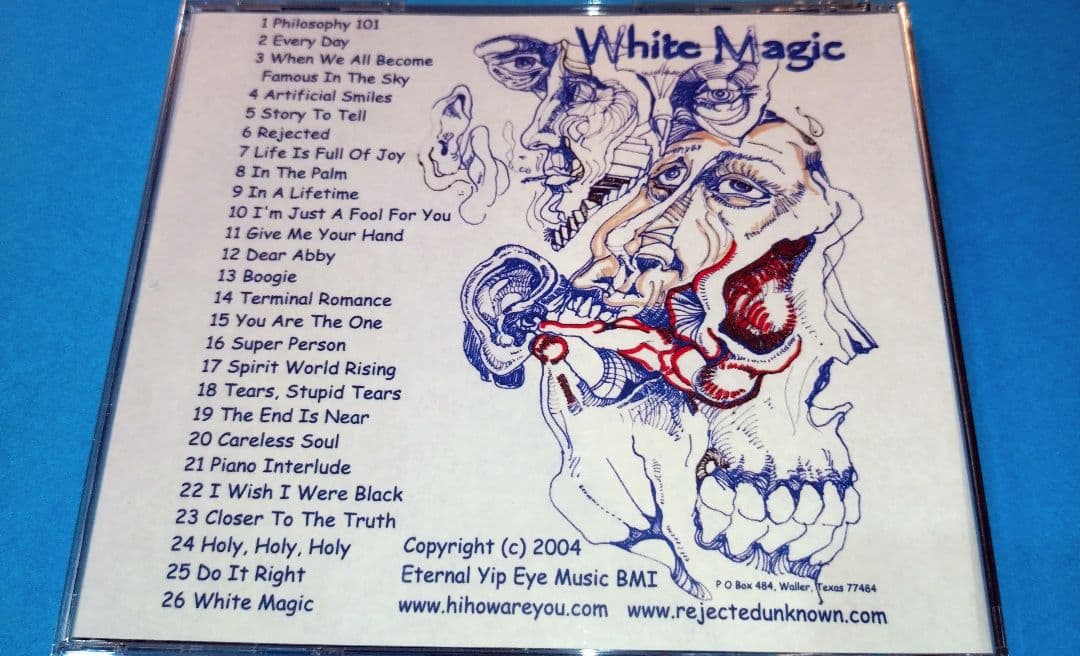 White Magic
1 Philosophy 101
2 Every Day
3 When We All Become
Famous In The Sky
4 Artificial Smiles
5 Story To Tell
6 Rejected
7 Life Is Full Of Joy
8 In The Palm
9 In A Lifetime
10 I'm Just A Fool For You
11 Give Me Your Hand
12 Dear Abby
13 Boogie
14 Terminal Romance
15 You Are The One
16 Super Person
17 Spirit World Rising
18 Tears, Stupid Tears
19 The End Is Near
20 Careless Soul
21 Piano Interlude
22 I Wish I Were Black
23 Closer To The Truth
24 Holy, Holy, Holy
25 Do It Right
26 White Magic
Copyright (c) 2004
Eternal Yip Eye Music BMI
P O Box 484, Waller, Texas 77484
www.hihowareyou.com www.rejectedunknown.com